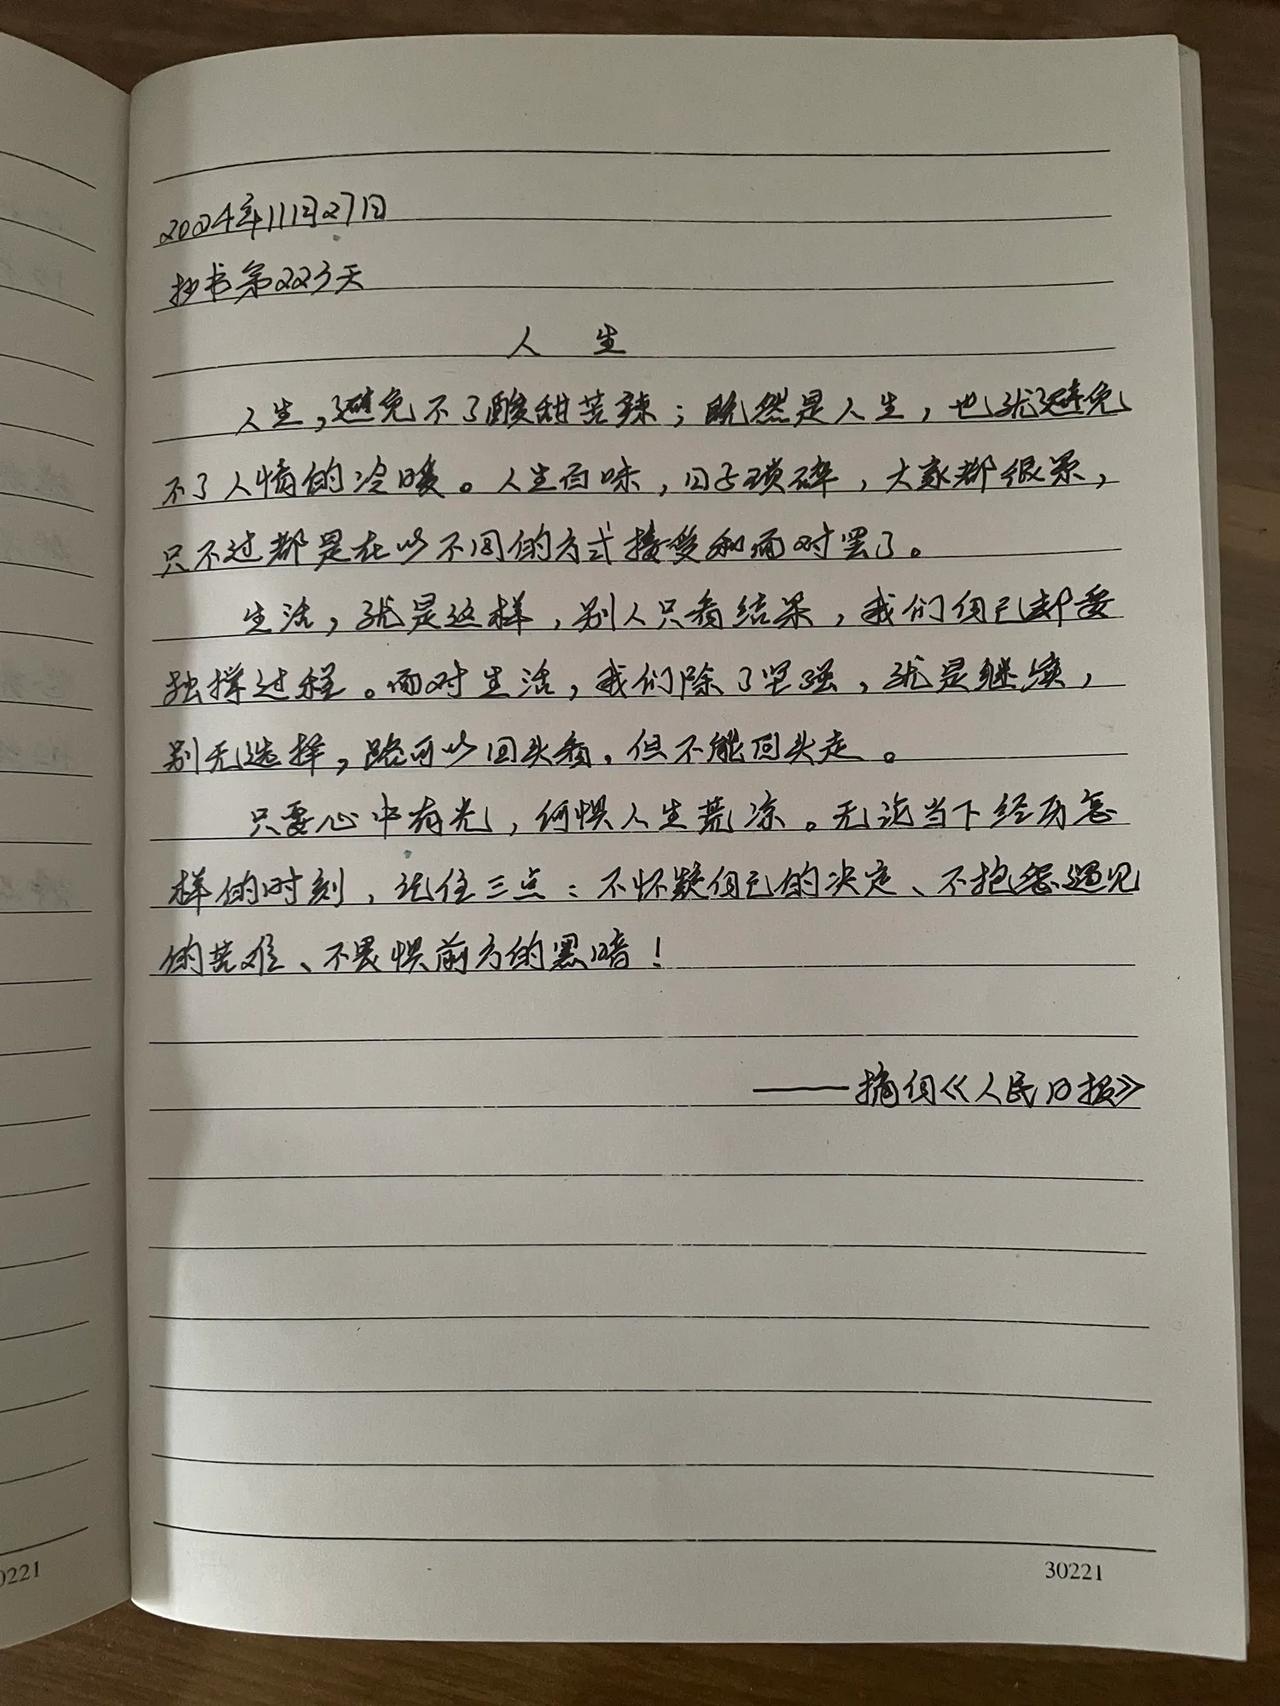 2024年11月27日
抄书第223天
人 生
人生，避免不了酸甜苦辣；既然是人生，也就避免
不了人情的冷暖。人生百味，日子琐碎，大家都很累，
只不过都是在以不同的方式接受和面对罢了。
生活，就是这样，别人只看结果，我们自己却要
独撑过程。面对生活，我们除了坚强，就是继续，
别无选择，路可以回头看，但不能回头走。
只要心中有光，何惧人生荒凉。无论当下经历怎
样的时刻，记住三点：不怀疑自己的决定、不抱怨遇见
的苦难、不畏惧前方的黑暗！
——摘自《人民日报》
30221
0221